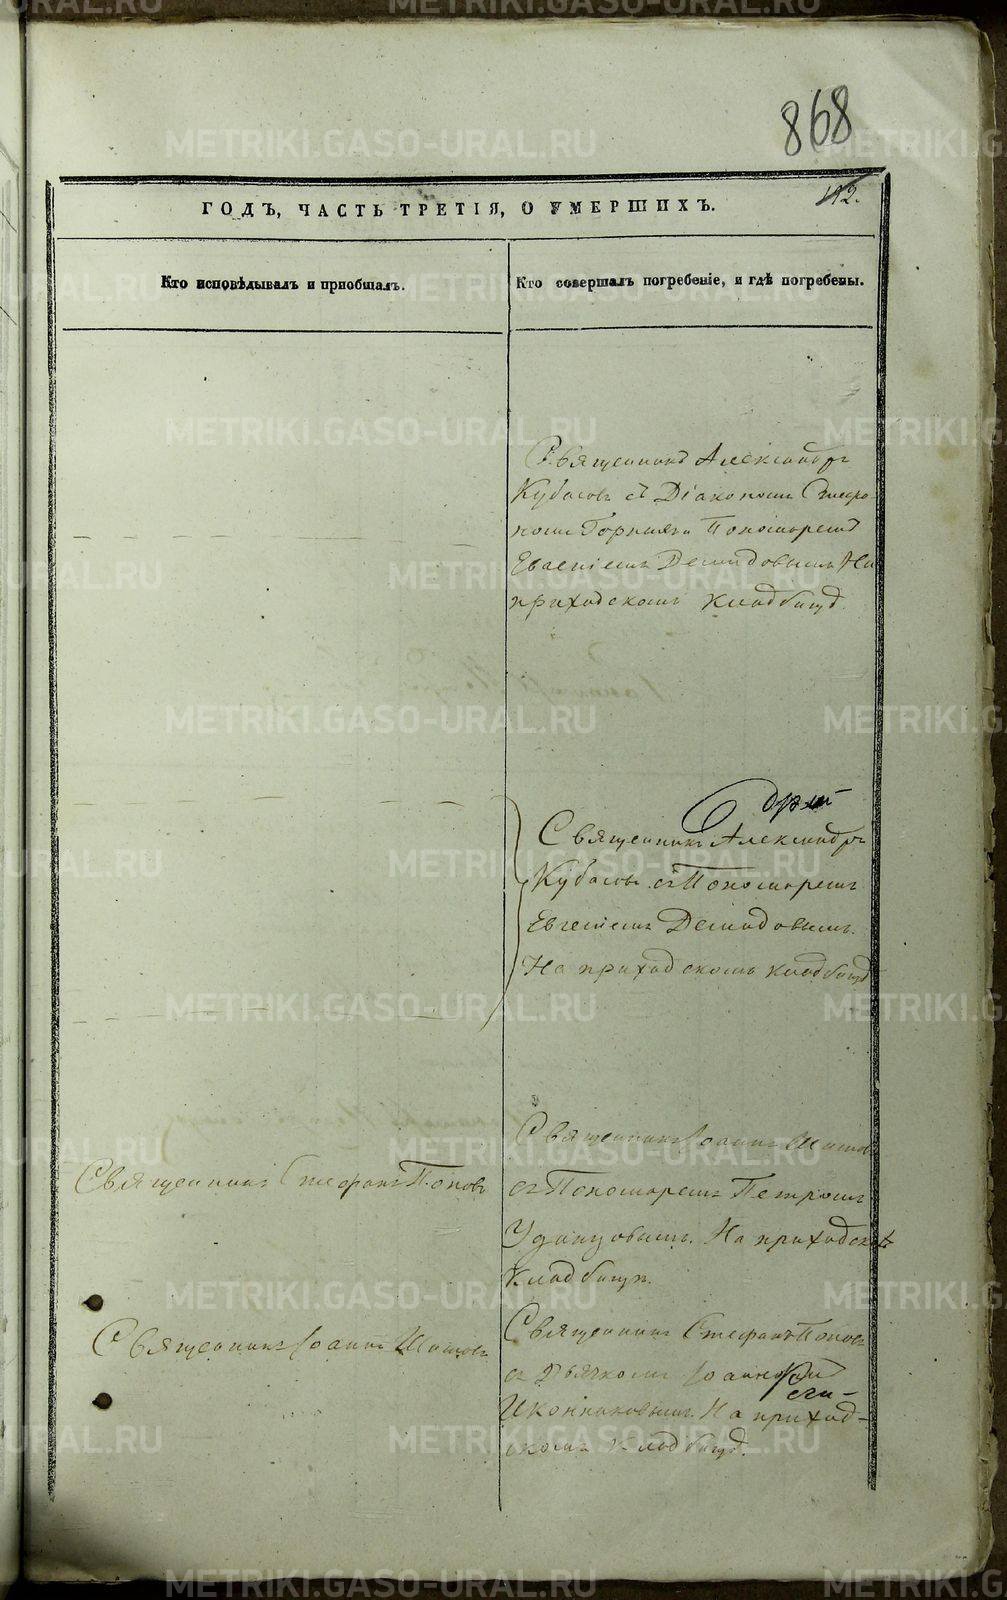 868
112.
ГОДЪ, ЧАСТЬ ТРЕТІЯ, О УМЕРШИХЪ.
Кто исповѣдывалъ и приобщалъ.
Кто совершалъ погребеніе, и гдѣ погребены.
Священникъ Александръ
Кубасовъ съ Діакономъ
Пономаремъ
Евгеніемъ Демидовымъ На
приходскомъ кладбищѣ
Священникъ Александръ
Кубасовъ съ Пономаремъ
Евгеніемъ Демидовымъ.
На приходскомъ кладбищѣ
Священникъ Стефанъ Поповъ
Священникъ Іоаннъ Шишовъ
съ Пономаремъ Петромъ
Удинцовымъ. На приходском
кладбищѣ.
Священникъ Іоаннъ Шишовъ
Священникъ Стефанъ Поповъ
съ Дьячкомъ Іоанномъ
Иконниковымъ. На приход-
скомъ кладбищѣ.
METRIKI.GASO-URAL.RU